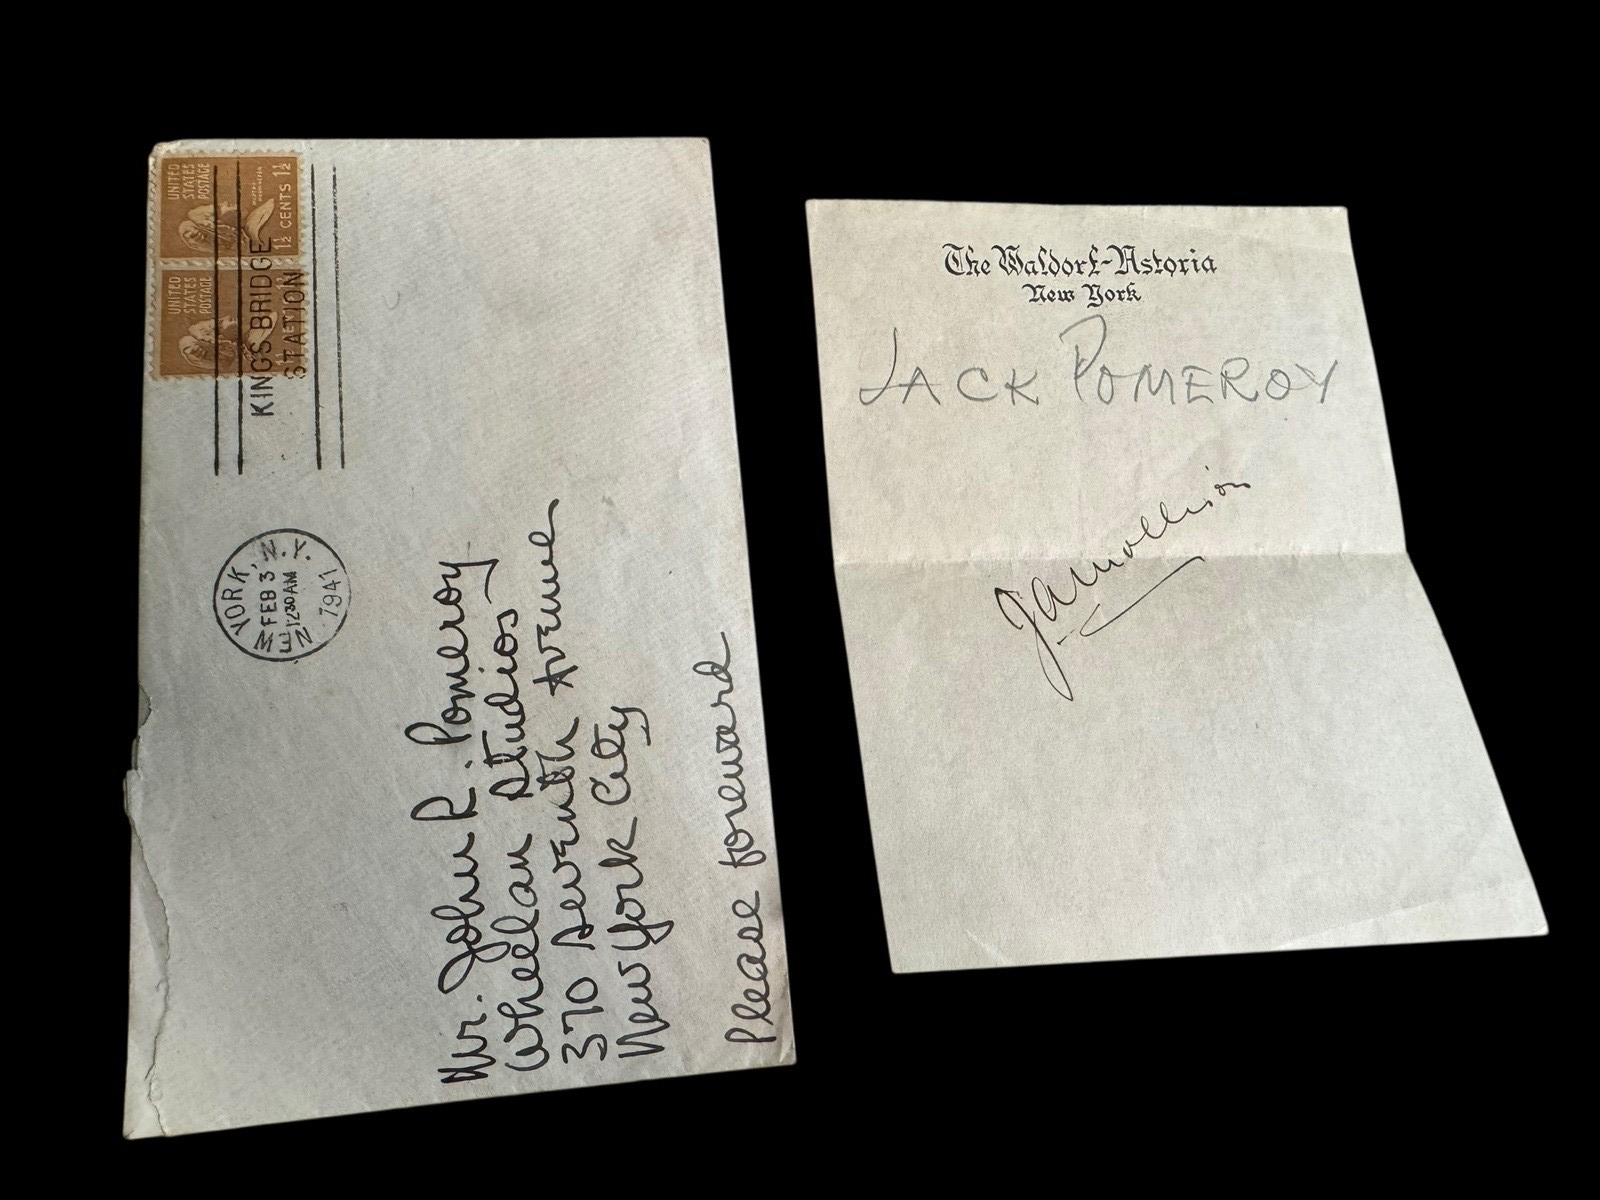 UNITED
STATES
POSTAGE
MARTHA WASHINGTON
1½ CENTS 1½
UNITED
STATES
POSTAGE
KINGSBRIDGE
STATION
NEW YORK, N.Y.
FEB 3
1230 AM
1941
Mr. John R. Pomeroy
Wheelan Studios
370 Seventh Avenue
New York City
Please foreward
The Waldorf-Astoria
New York
JACK POMEROY
J A Mollison